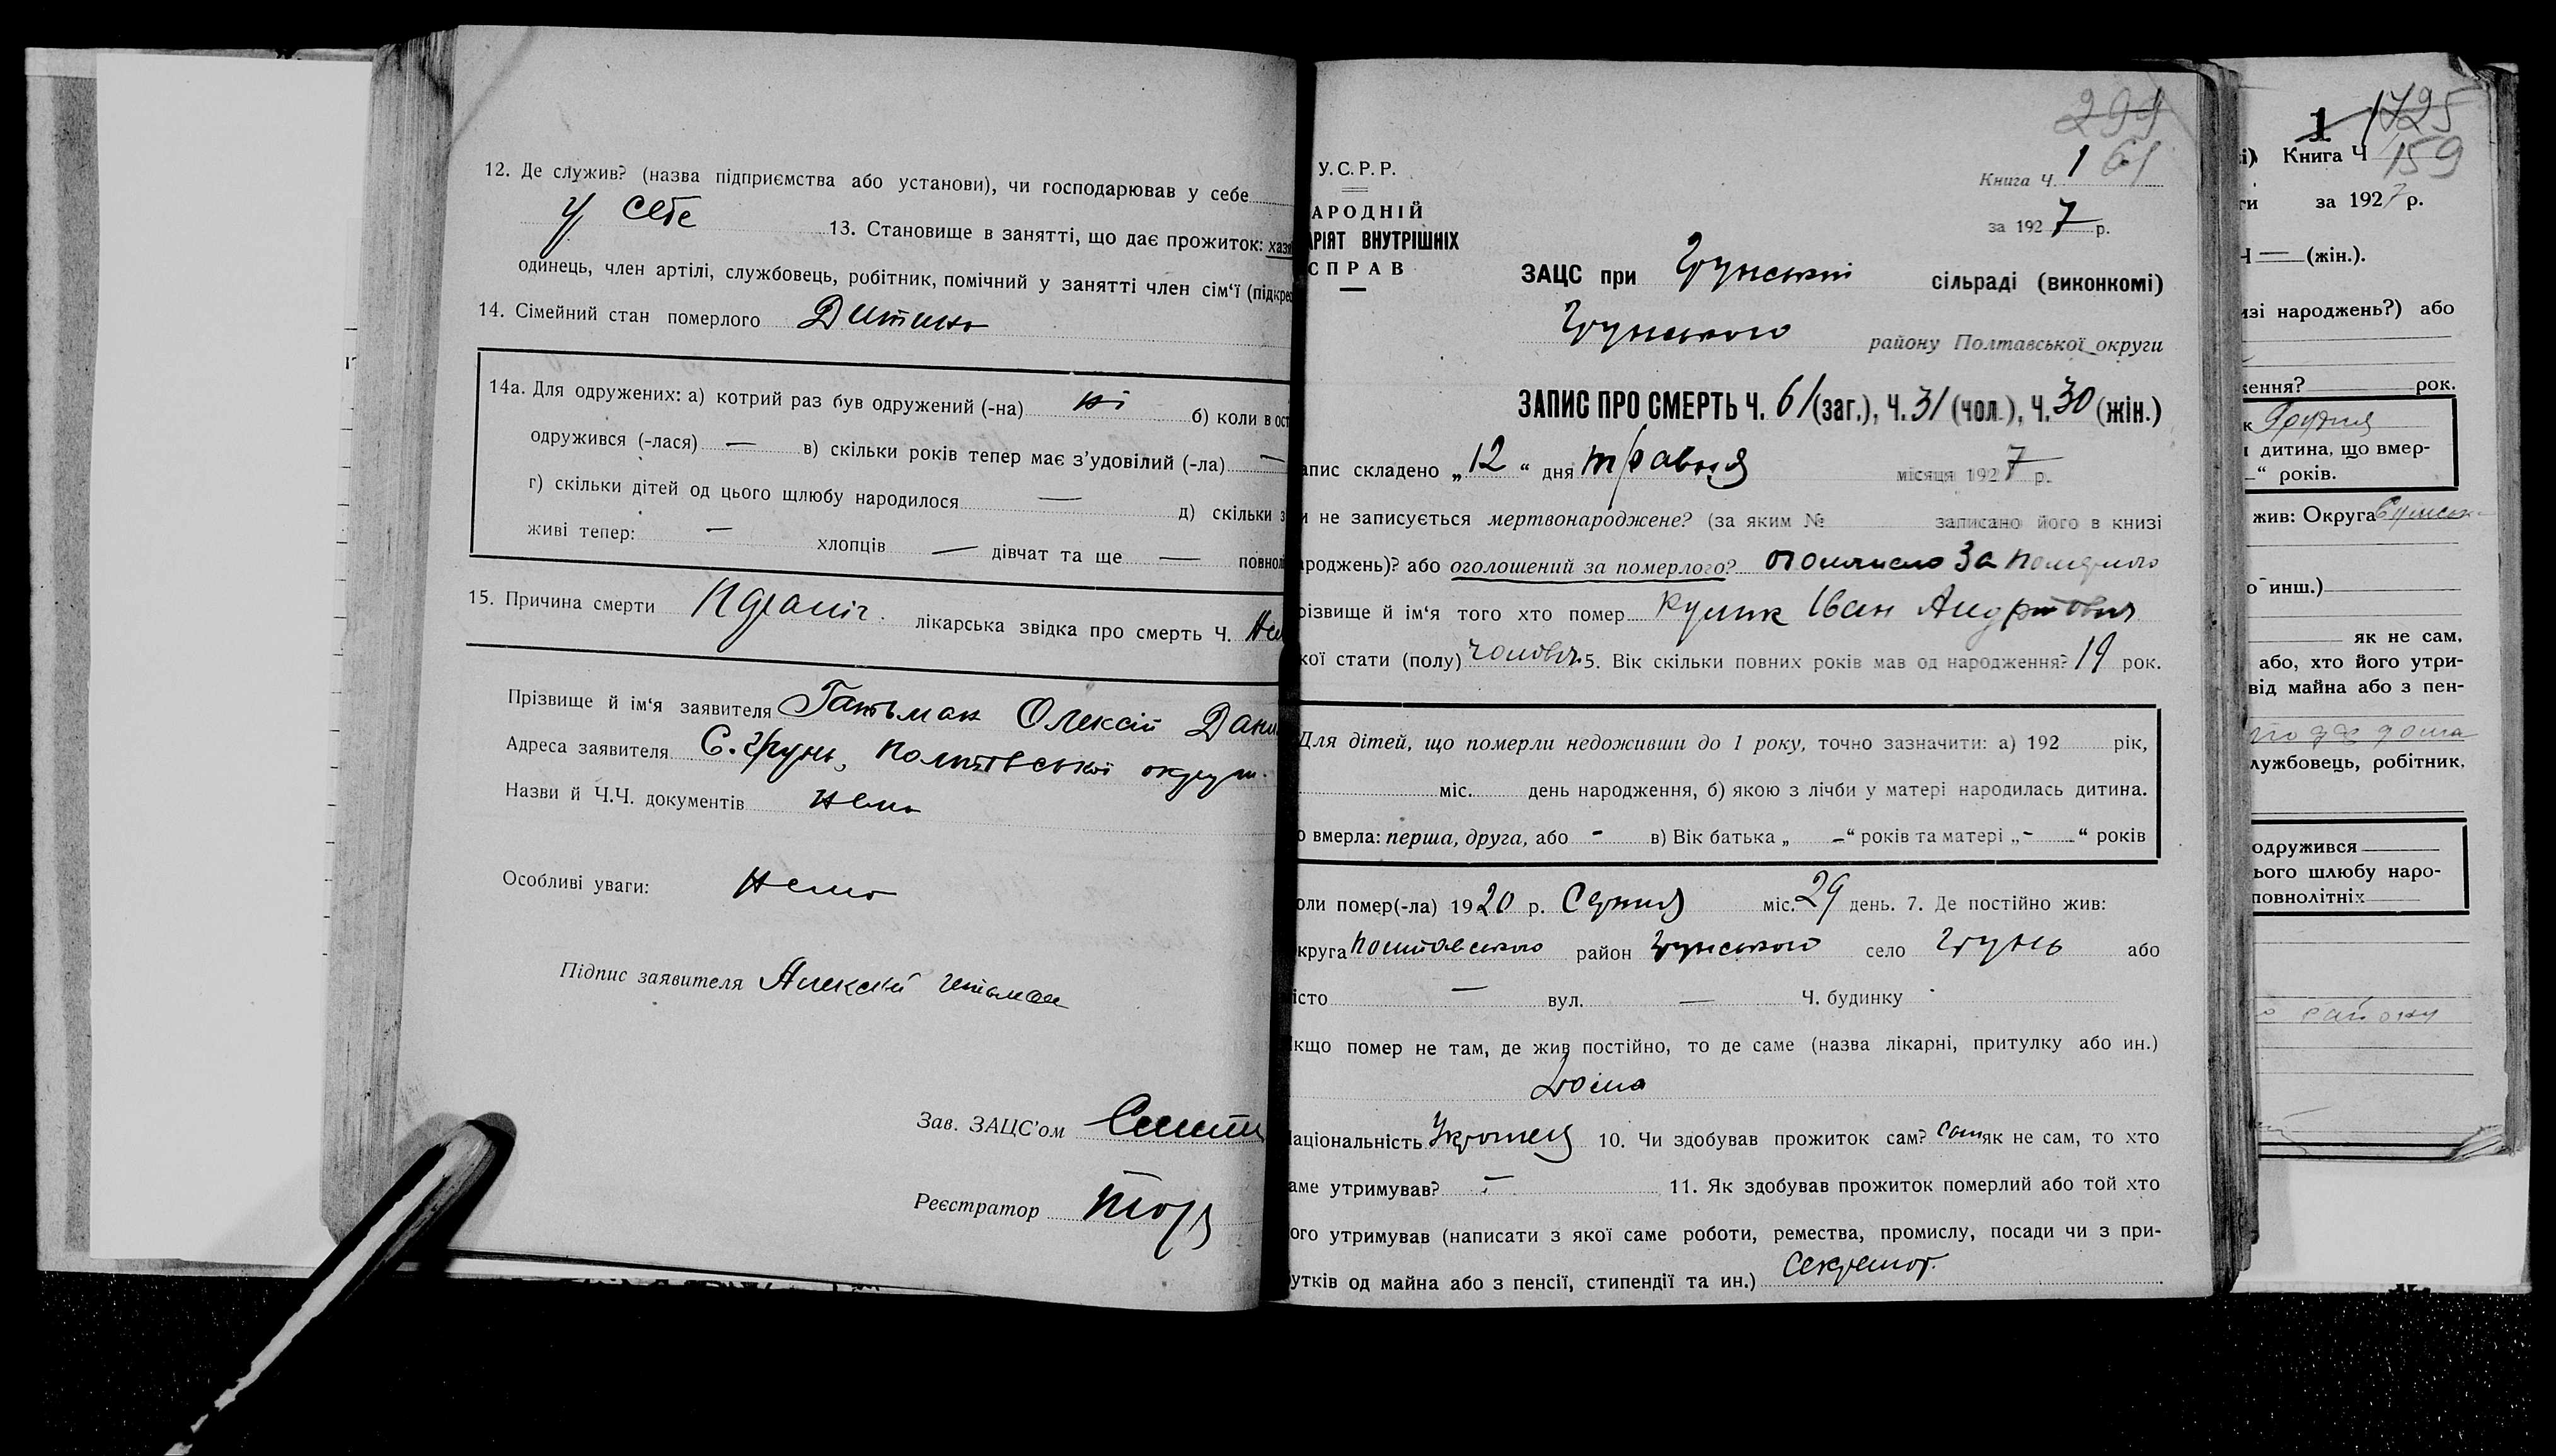 12. Де служив? (назва підприємства або установи), чи господарював у себе
у себе 13. Становище в занятті, що дає прожиток: хазя
одинець, член артілі, службовець, робітник, помічний у занятті член сім‘ї (підкрес
14. Сімейний стан померлого Дитина
14а. Для одружених: а) котрий раз був одружений (-на) ні б) коли в ост
одружився (-лася) — в) скільки років тепер має з’удовілий (-ла) —
г) скільки дітей од цього шлюбу народилося — д) скільки з
живі тепер: — хлопців — дівчат та ще — повнол
15. Причина смерти лікарська звідка про смерть Ч.
Прізвище й ім‘я заявителя Гатьман Олексій Дани
Адреса заявителя С. Грунь, Полтавської округи.
Назви й Ч.Ч. документів нема
Особливі уваги: нема
Підпис заявителя Алексій гетьман
Зав. ЗАЦС’ом
Реєстратор
У.С.Р.Р.
АРОДНІЙ
АРІЯТ ВНУТРІШНІХ
СПРАВ
299
Книга Ч. 1 61
за 1927 р.
ЗАЦС при Грунській сільраді (виконкомі)
Грунського району Полтавської округи
ЗАПИС ПРО СМЕРТЬ Ч. 61 (заг.), Ч. 31 (чол.), Ч. 30 (жін.)
апис складено „12“ дня травня місяця 1927 р.
и не записується мертвонароджене? (за яким № записано його в книзі
ароджень)? або оголошений за померлого? за
різвище й ім‘я того хто помер Кулик Іван Андрійович
кої стати (полу) чолов. 5. Вік скільки повних років мав од народження? 19 рок.
Для дітей, що померли недоживши до 1 року, точно зазначити: а) 192 рік,
міс. день народження, б) якою з лічби у матері народилась дитина.
о вмерла: перша, друга, або - в) Вік батька „ –“ років та матері „- “ років
оли помер(-ла) 1920 р. Серпня міс. 29 день. 7. Де постійно жив:
круга Полтавського район Грунського село Грунь або
істо — вул. — Ч. будинку
кщо помер не там, де жив постійно, то де саме (назва лікарні, притулку або ин.)
Дома
аціональність Українець 10. Чи здобував прожиток сам? сам як не сам, то хто
аме утримував? - 11. Як здобував прожиток померлий або той хто
ого утримував (написати з якої саме роботи, ремества, промислу, посади чи з при-
утків од майна або з пенсії, стипендії та ин.) Секретар.
1 1725
і) Книга Ч 159
ги за 1927 р.
Ч — (жін.).
изі народжень?) або
ження? рок.
к Грудня
и дитина, що вмер-
“ років.
жив: Округа Сумськ
о инш.)
як не сам,
або, хто його утри-
від майна або з пен-
лужбовець, робітник,
одружився
ього шлюбу наро-
повнолітніх
району